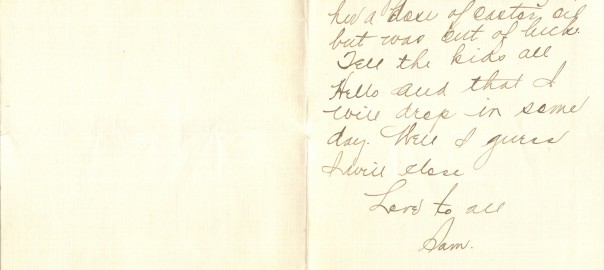 her a dose of castor oil
but was out of luck.
Tell the kids all
Hello and that I
will drop in some
day. Well I guess
I will close
Love to all
Sam.